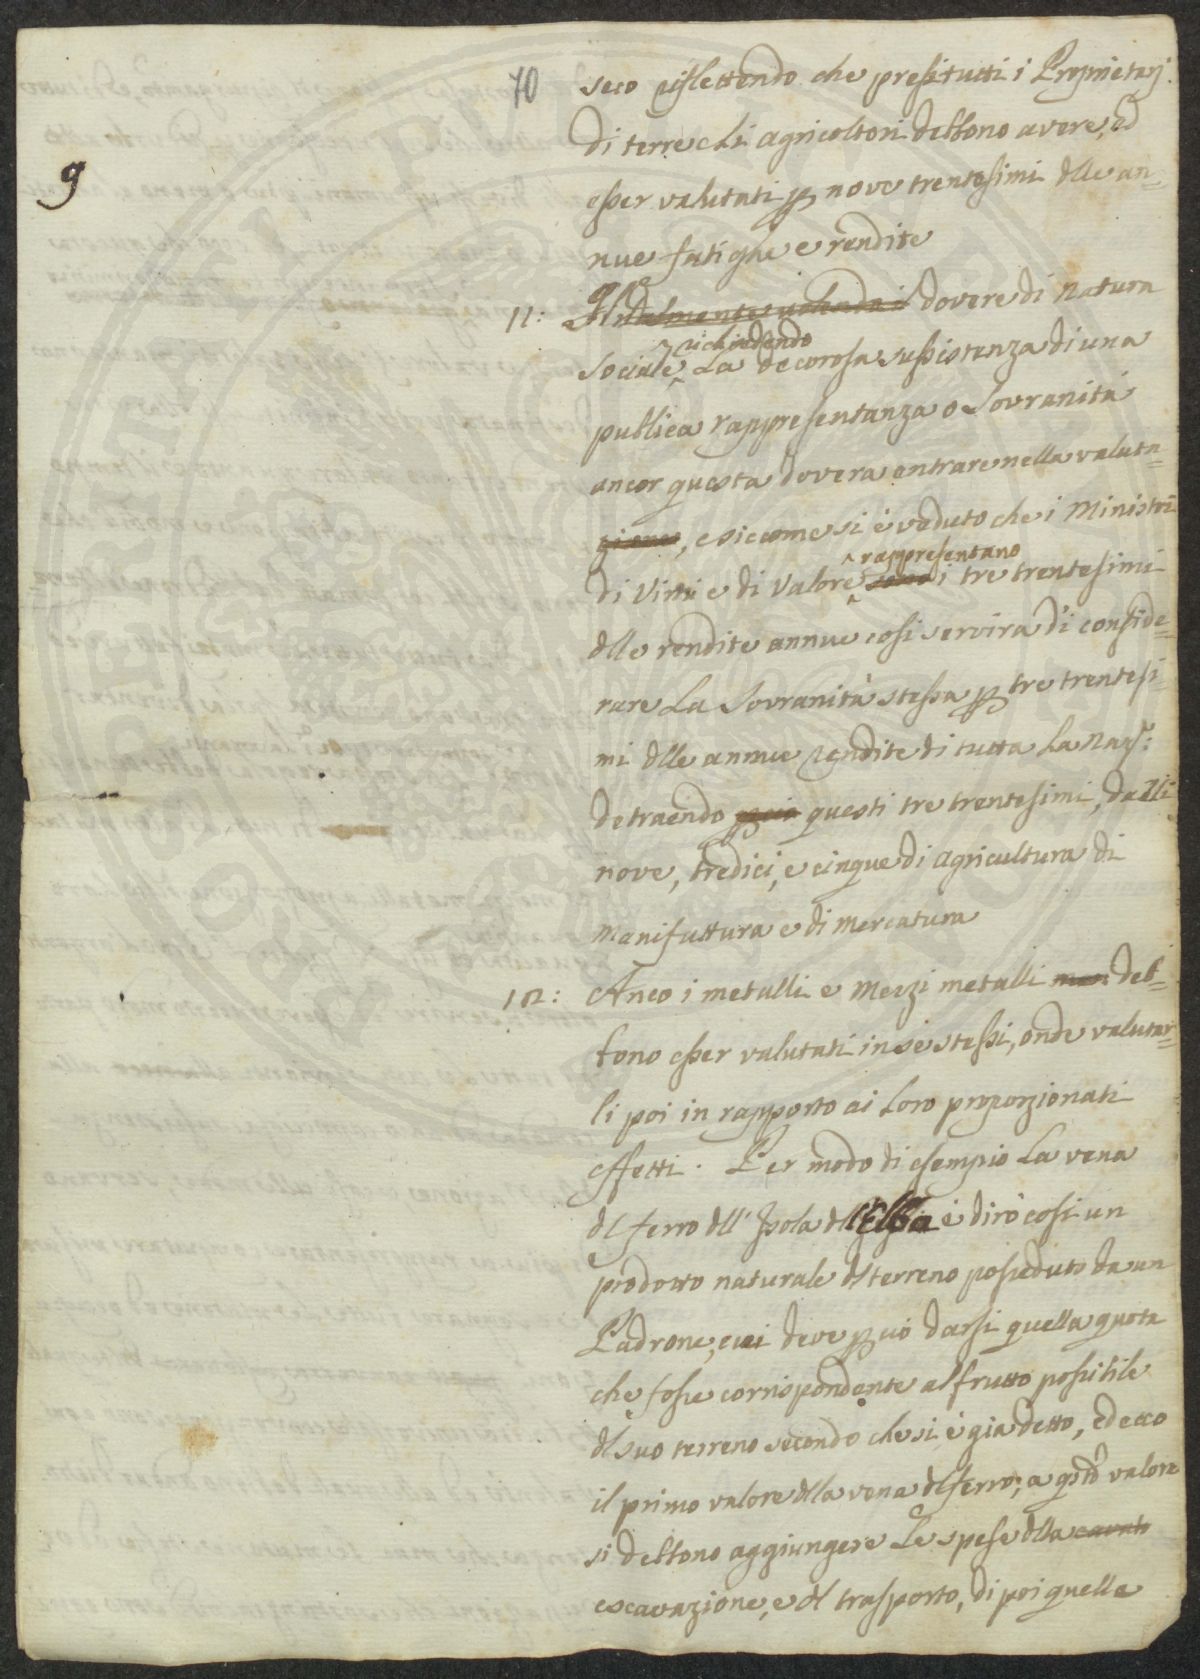 70
9
seco riflettendo che presso tutti i Proprietarj
di terre e li agricoltori debbono avere, ed
esser valutati p nove trentesimi dlle an=
nue fatighe e rendite
11: dovere di natura
richiedendo
sociale, La decorosa sussistenza di una
publica rappresentanza o Sovranità
ancor questa doverà entrare nella valuta=
zione, e siccome si è veduto che i Ministri
rappresentano
di Virtù e di Valore sono i tre trentesimi
dlle rendite annue cosi servirà di conside=
rare La Sovranità stessa p tre trentesi=
mi dlle annue rendite di tutta La Naz:e
detraendo pciò questi tre trentesimi, dalli
nove, tredici, e cinque di agricultura di
Manifattura e di Mercatura
12: Anco i metalli e Mezzi metalli deb=
bono esser valutati in sé stessi, onde valutar=
li poi in rapporto ai Loro proporzionati
effetti. Per modo di esempio La vena
dl ferro dll' Isola dll'Elba è dirò cosi un
prodotto naturale dl terreno posseduto da un
Padrone, cui deve pciò darsi quella quota
che fosse corrispondente al frutto possibile
dl suo terreno secondo che si è già detto, ed ecco
il primo valore dlla vena dl ferro; a qsto valore
si debbono aggiungere Le spese dlla
escavazione, e dl trasporto, di poi quelle